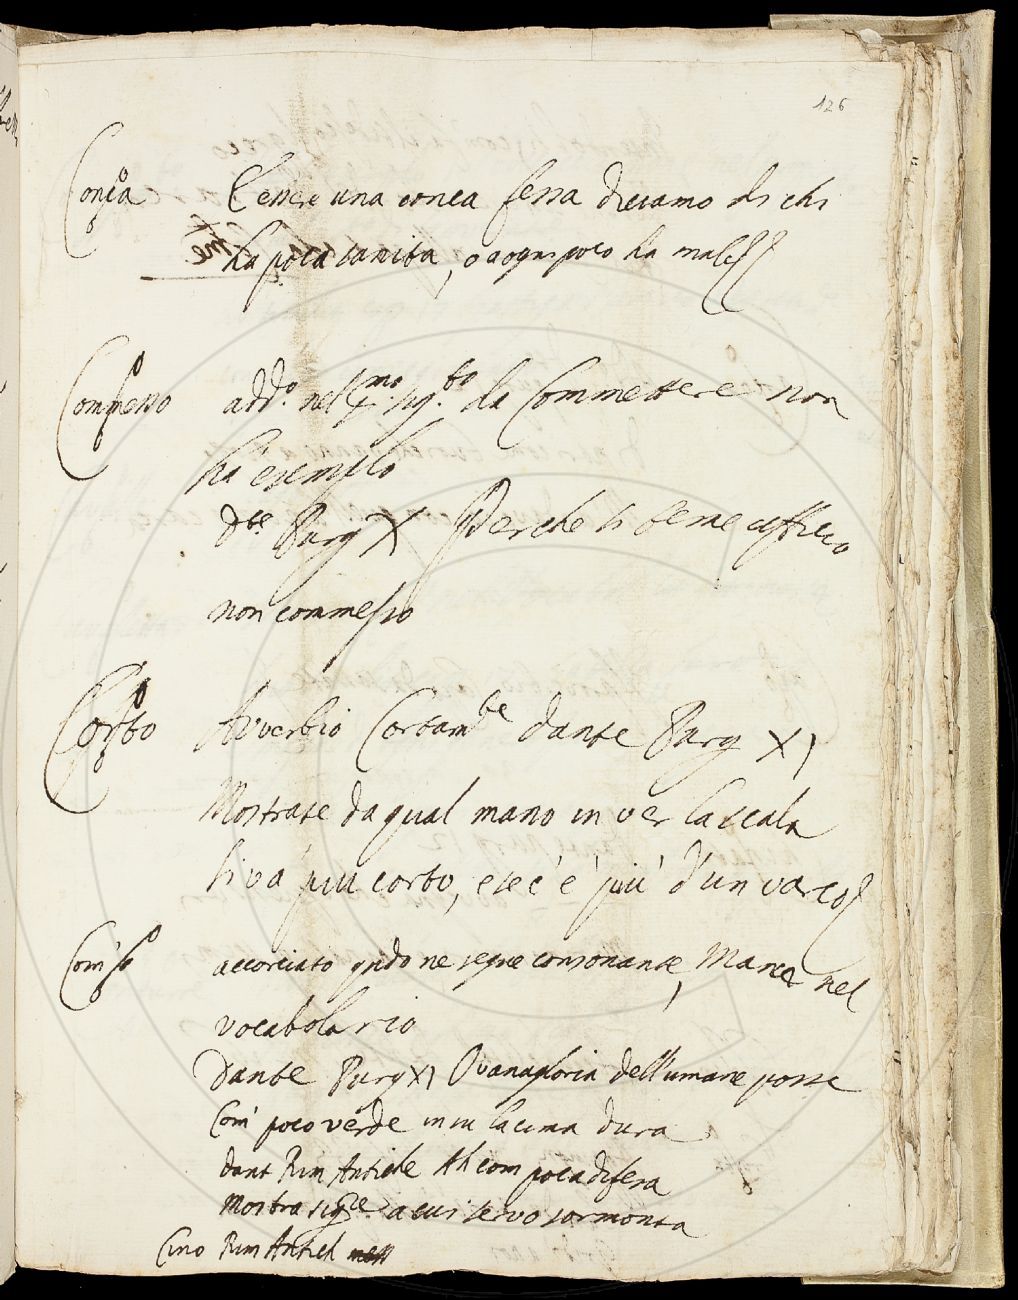 126
Conca L'essere una conca fessa diciamo di chi
ha poca sanità, o a ogni poco ha male
Commesso add.o nel sig.to da Commettere non
ha esemplo
Dte Purg X Perche si teme ufficio
non commesso
Corto Avverbio Cortamte dante Purg XI
Mostrate da qual mano in ver la scala
si va piu corto, e se c'è piu d'un varco
Com' accorciato qndo ne segue consonante, Manca nel
vocabolario
Dante Purg XI O vana gloria dell'umane posse
Com' poco verde in su la cima dura
dant Rim Antiche Ah com poca difesa
Mostra sigre a cui servo sormonta
Cino Rim Antich